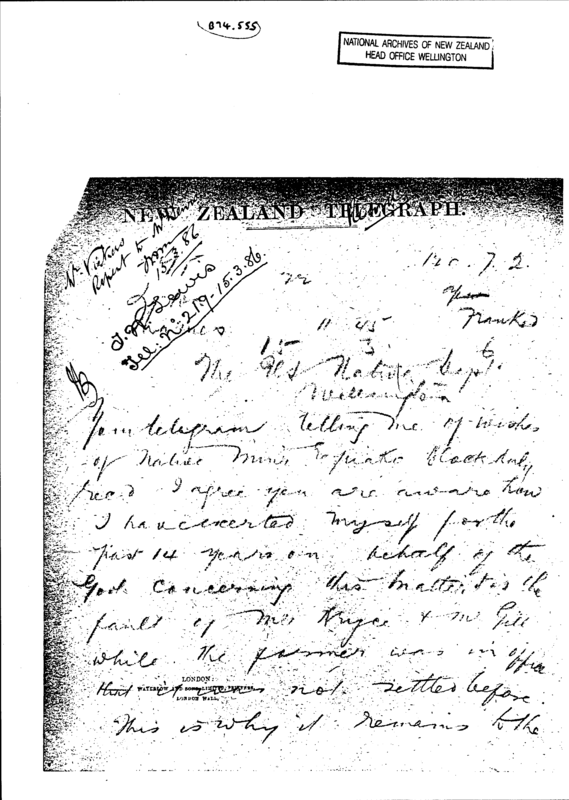 874.555
NATIONAL ARCHIVES OF NEW ZEALAND
HEAD OFFICE WELLINGTON
NEW ZEALAND TELEGRAPH.
Report to
from
15.3.86
T.W. Lewis
Tel: No. 219-15.3.86.
No. 72.
11 45
Franked
15 3 6
The U S Native Dept.
Wellington
Your telegram telling me of wishes
of Native Minr Block duly
recd I agree you are aware how
I have exerted myself for the
past 14 years on behalf of the
Govt concerning this matter it is the
fault of Mr Bryce & Mr Gill
while the former was in office
that it was not settled before.
This is why it remains to the
LONDON:
WATERLOW AND SONS LIMITED, PRINTERS,
LONDON WALL.